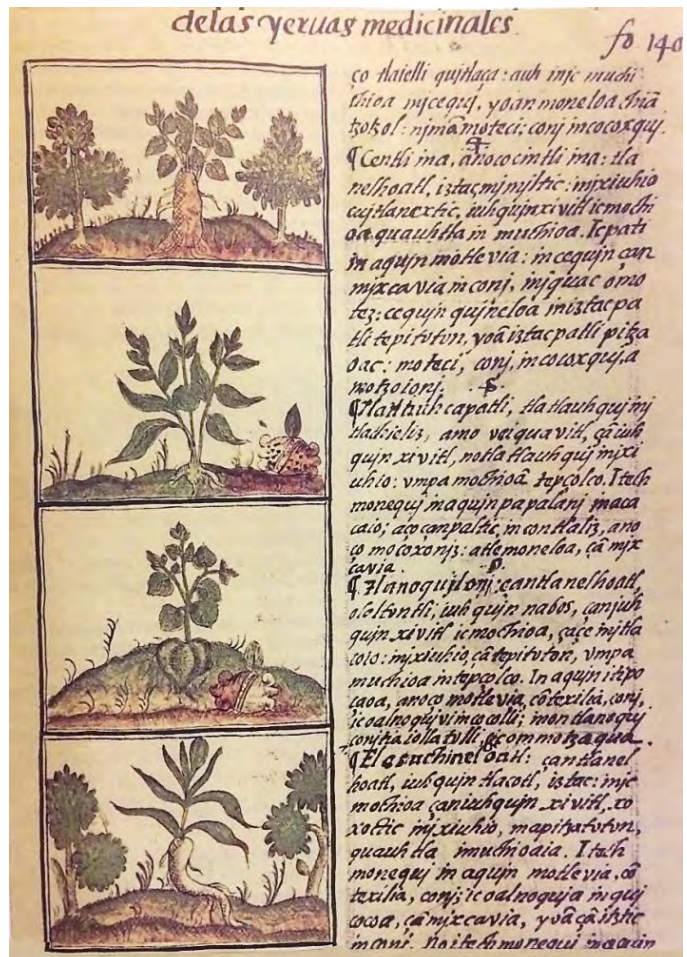 delas yeruas medicinales
fo 140
ço tlaielli quitlaça: auh injc muchi
thioa mjcequj, yoan moneloa chiā
tzotzol: njmā moteci; conj in cocoxquj.
¶ Centli ina, anoço cintli ina: tla
nelhoatl, iztac, mjmiltic: mjxiuhio
cujtlanextic, iuhqujn xivitl ic mochi
oa quauhtla in muchioa. Ic pati
in aqujn motlevia: in cequjn çan
mjxcavia in conj, injquac omo
tez: cequjn qujneloa in iztac pa
tli tepitvton, yoā iztacpatli pitza
oac: moteci, conj, in cocoxquj, a
motzoionj.
¶ Tlatlauhcapatli, tlatlauhquj inj
tlatkieliz, amo vei quavitl, çā iuh
qujn xivitl, no tlatlauhquj mjxi
uhio: vmpa mochioā tepcolco. Itech
monequj in aqujn papalanj inaca
caio; aço canpaltic, in contlaliz, ano
ço mocoxonjz: atle moneloa, çā mjx
cavia.
¶ Tlanoqujlonj: çan tlanelhoatl,
ololtontli; iuhqujn nabos, çan juh
qujn xivitl ic mochioa, çaçe injtla
coio: mjxiuhio, çā tepitoton, vmpa
muchioa in tepcolco. In aqujn itipo
caoa, anoço motlevia, cōtexilia, conj,
ic oalnoqujvi in cocolli; in ontlanoquj
conj tlaiollatulli ic ommotzaqua.
hoatl, iuhqujn tlacotl, iztac: injc
mochioa çan iuhqujn xivitl, xo
xoctic mjxiuhio, mapitzatoton,
quauhtla imuchioaia. Itech
monequj in aqujn motlevia, cō
texilia, conj; ic oalnoquja in quj
cocoa, çā mjxcavia, yoā çā itztic
in conj. no itech monequj in aqujn